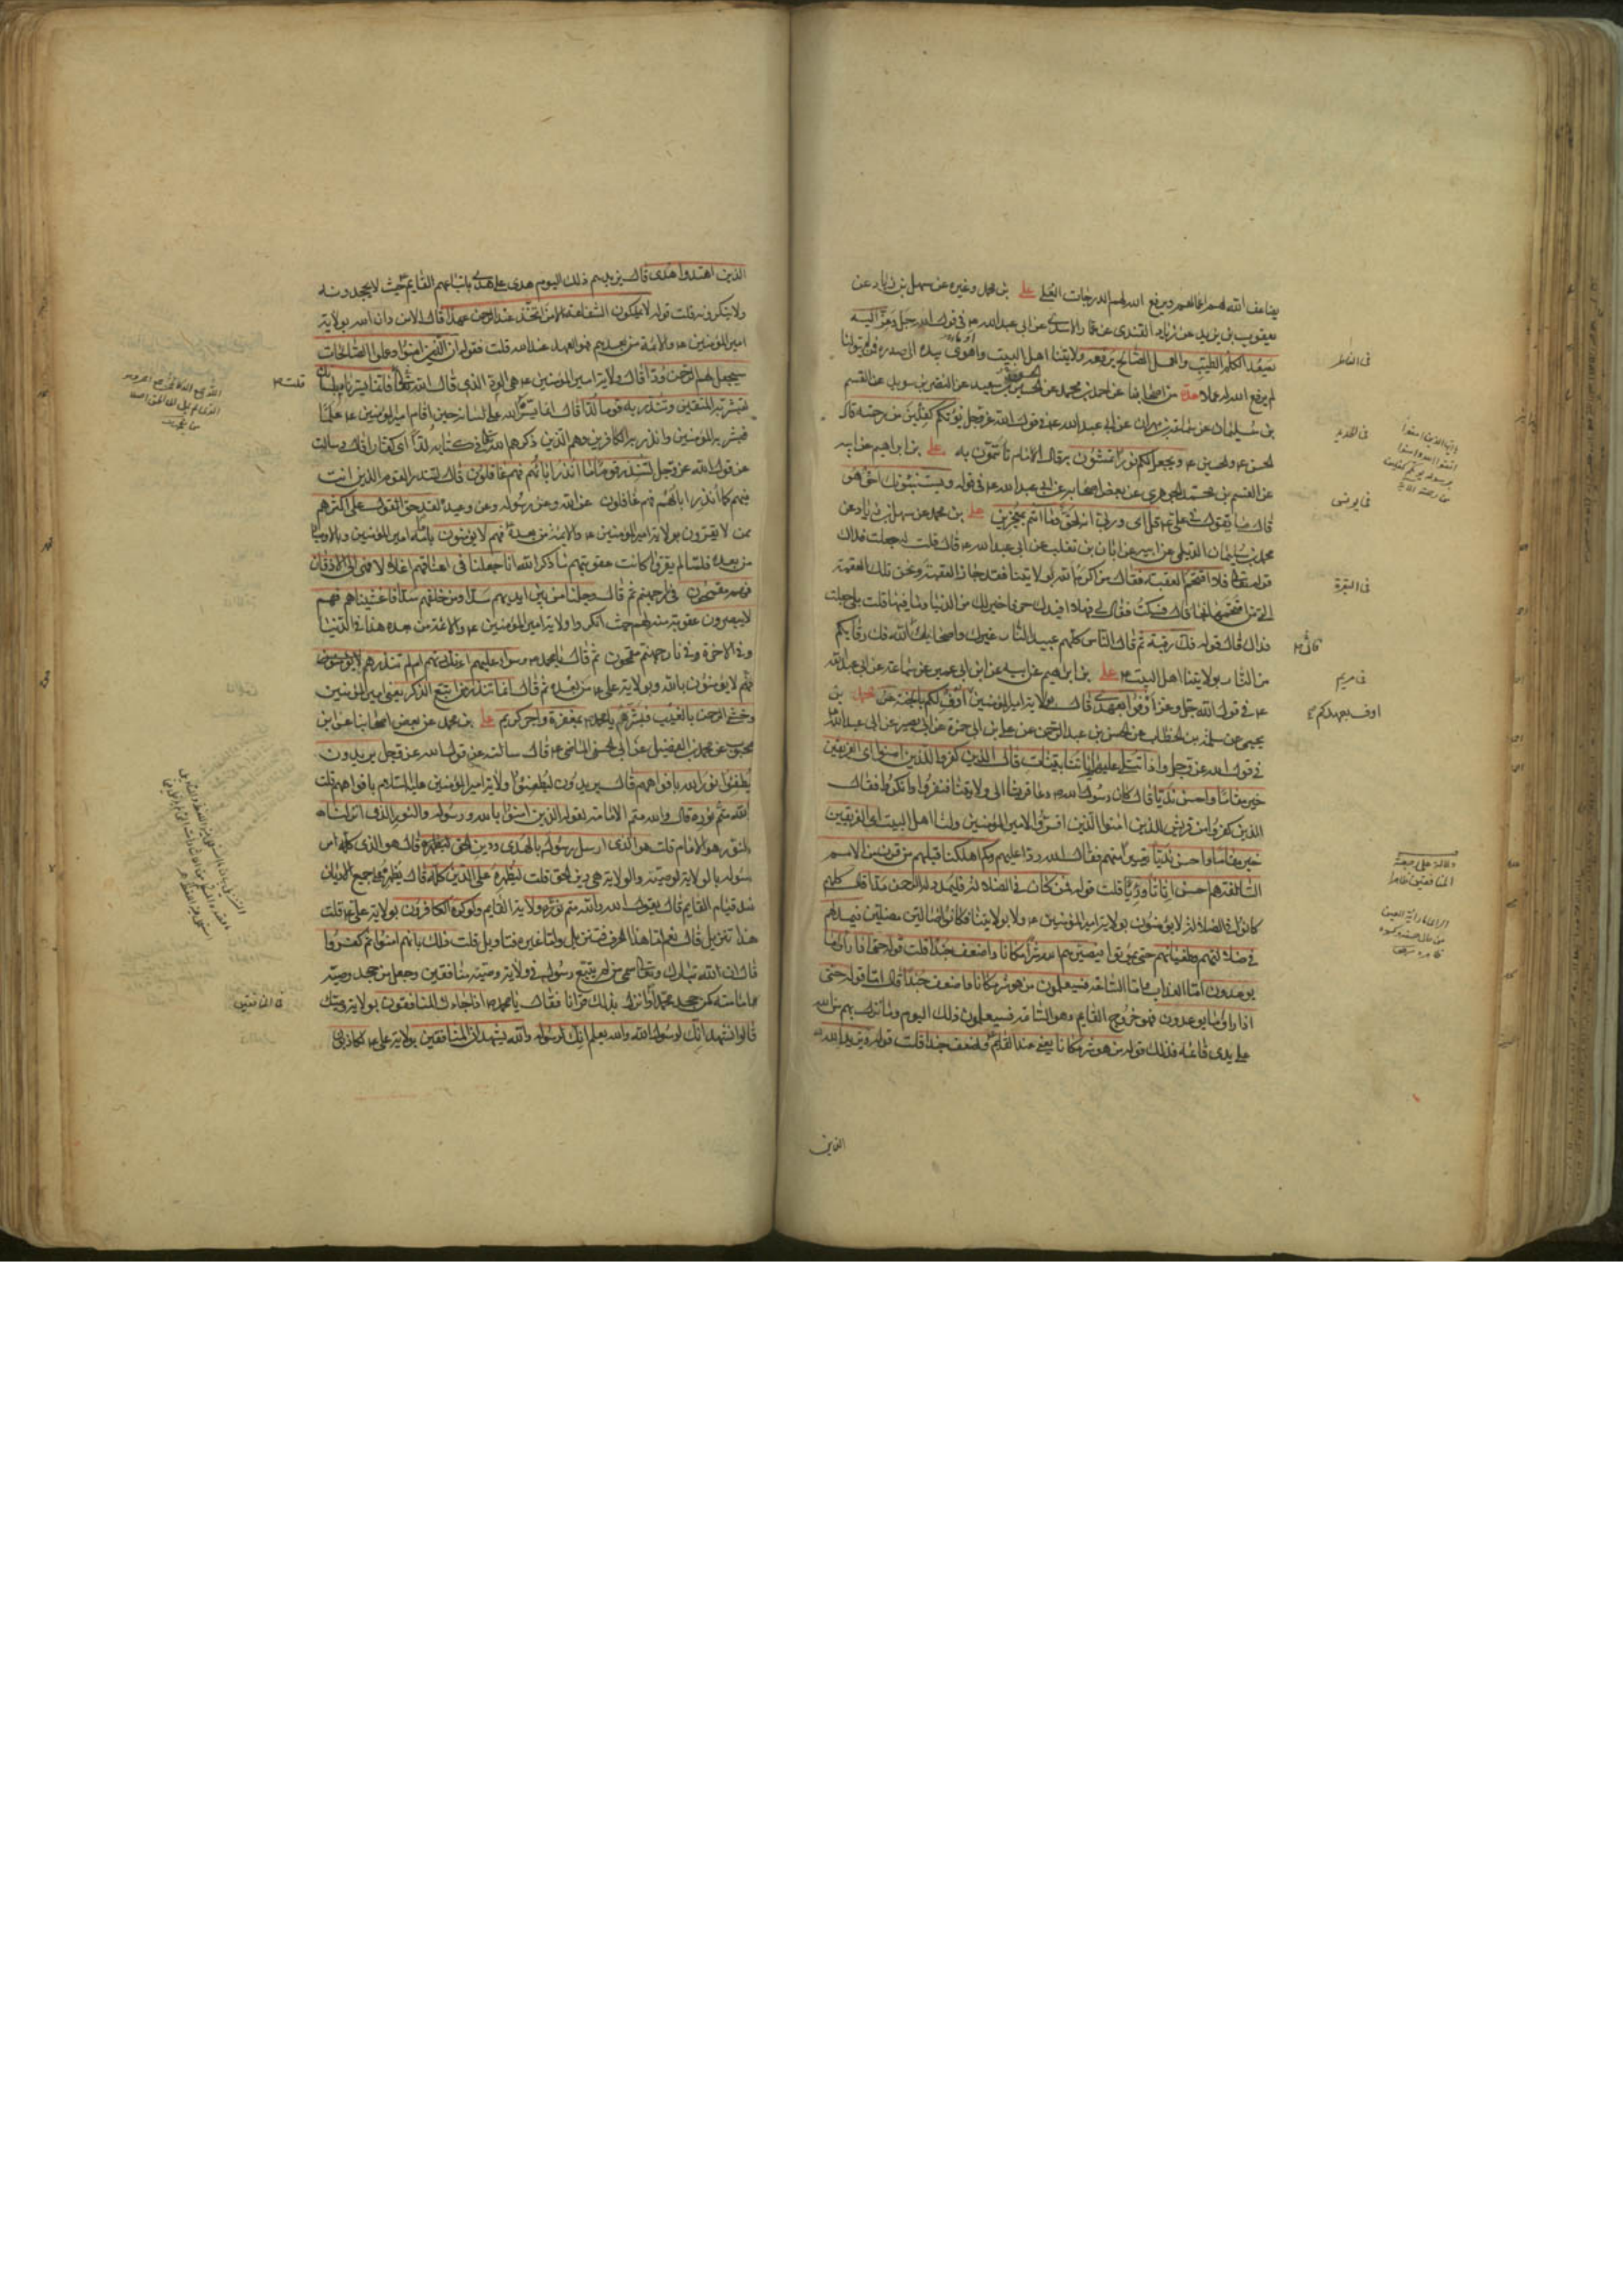 يضاعف الله لهم اعمالهم ويرفع الله لهم الدرجات العلى علي بن محمد وغيره عن سهل بن زياد عن
يعقوب بن يزيد عن زياد القندى عن عمار الاسدى عن ابى عبد الله ع فى قول الله عز وجل اليه
يصعد الكلم الطيب والعمل الصالح يرفعه ولايتنا اهل البيت واهوى بيده الى صدره فمن لم يتولنا
لم يرفع الله له عملا عدة من اصحابنا عن احمد بن محمد عن الحسين بن سعيد عن النضر بن سويد عن القسم
بن سليمان عن سماعة بن مهران عن ابى عبد الله ع فى قول الله عز وجل يؤتكم كفلين من رحمته قال
الحسن ع والحسين ع ويجعل لكم نورا تمشون به قال الامام تأتمون به علي بن ابراهيم عن ابيه
عن القسم بن محمد الجوهرى عن بعض اصحابه عن ابى عبد الله ع فى قوله ويستنبئونك احق هو
قال ما تقول فى على ع قل اى وربى انه لحق وما انتم بمعجزين علي بن محمد عن سهل بن زياد عن
محمد بن سليمان الديلمى عن ابيه عن ابان بن تغلب عن ابى عبد الله ع قال قلت له جعلت فداك
قوله تعالى فلا اقتحم العقبة فقال من اكرمه الله بولايتنا فقد جاز العقبة ونحن تلك العقبة
التى من اقتحمها نجا قال فسكت فقال لى فهلا افيدك حرفا خير لك من الدنيا وما فيها قلت بلى جعلت
فداك قال قوله فك رقبة ثم قال الناس كلهم عبيد النار غيرك واصحابك فان الله فك رقابكم
من النار بولايتنا اهل البيت ع علي بن ابراهيم عن ابيه عن ابن ابى عمير عن سماعة عن ابى عبد الله
ع فى قول الله جل وعز اوفوا بعهدى قال بولاية امير المؤمنين اوف لكم بالجنة محمد بن
يحيى عن سلمة بن الخطاب عن الحسن بن عبد الرحمن عن على بن ابى حمزة عن ابى بصير عن ابى عبد الله
فى قول الله عز وجل واذا تتلى عليهم اياتنا بينات قال الذين كفروا للذين امنوا اى الفريقين
خير مقاما واحسن نديا قال كان رسول الله دعا قريشا الى ولايتنا فنفروا وانكروا فقال
الذين كفروا من قريش للذين امنوا الذين اقروا لامير المؤمنين ولنا اهل البيت اى الفريقين
خير مقاما واحسن نديا تعييرا منهم فقال الله ردا عليهم وكم اهلكنا قبلهم من قرن من الامم
السالفة هم احسن اثاثا ورئيا قلت قوله من كان فى الضلالة فليمدد له الرحمن مدا قال كلهم
كانوا فى الضلالة لا يؤمنون بولاية امير المؤمنين ع ولا بولايتنا فكانوا ضالين مضلين فيمد لهم
فى ضلالتهم وطغيانهم حتى يموتوا فيصيرهم الله شرا مكانا واضعف جندا قلت قوله حتى اذا راوا ما
يوعدون اما العذاب واما الساعة فسيعلمون من هو شر مكانا واضعف جندا قال اما قوله حتى
اذا راوا ما يوعدون فهو خروج القايم وهو الساعة فسيعلمون ذلك اليوم وما نزل بهم من الله
على يدى قائمه فذلك قوله من هو شر مكانا يعنى عند القايم واضعف جندا قلت قوله ويزيد الله
فى الفاطر
فى الحديد
فى يونس
فى البقرة
فى مريم
اوف بعهدكم
الذين اهتدوا هدى قال يزيدهم ذلك اليوم هدى على هدى باتباعهم القايم حيث لا يجحدونه
ولا ينكرونه قلت قوله لا يملكون الشفاعة الا من اتخذ عند الرحمن عهدا قال الا من دان الله بولاية
امير المؤمنين ع والائمة من بعده فهو العهد عند الله قلت قوله ان الذين امنوا وعملوا الصالحات
سيجعل لهم الرحمن ودا قال ولاية امير المؤمنين ع هى الود الذى قال الله تعالى فانما يسرناه بلسانك
لتبشر به المتقين وتنذر به قوما لدا قال انما يسره الله على لسانه حين اقام امير المؤمنين ع علما
فبشر به المؤمنين وانذر به الكافرين وهم الذين ذكرهم الله فى كتابه لدا اى كفارا قال وسالته
عن قول الله عز وجل لتنذر قوما ما انذر اباؤهم فهم غافلون قال لتنذر القوم الذين انت
فيهم كما انذر اباؤهم فهم غافلون عن الله وعن رسوله وعن وعيده لقد حق القول على اكثرهم
ممن لا يقرون بولاية امير المؤمنين ع والائمة من بعده فهم لا يؤمنون بامامة امير المؤمنين والاوصياء
من بعده فلما لم يقروا كانت عقوبتهم ما ذكر الله انا جعلنا فى اعناقهم اغلالا فهى الى الاذقان
فهم مقمحون فى نار جهنم ثم قال وجعلنا من بين ايديهم سدا ومن خلفهم سدا فاغشيناهم فهم
لا يبصرون عقوبة منه لهم حيث انكروا ولاية امير المؤمنين ع والائمة من بعده هذا فى الدنيا
وفى الاخرة فى نار جهنم مقمحون ثم قال يا محمد وسواء عليهم ءانذرتهم ام لم تنذرهم لا يؤمنون
فهم لا يؤمنون بالله وبولاية على ع ومن بعده ثم قال انما تنذر من اتبع الذكر يعنى امير المؤمنين
وخشى الرحمن بالغيب فبشره يا محمد بمغفرة واجر كريم علي بن محمد عن بعض اصحابنا عن ابن
محبوب عن محمد بن الفضيل عن ابى الحسن الماضى ع قال سالته عن قول الله عز وجل يريدون
ليطفئوا نور الله بافواههم قال يريدون ليطفئوا ولاية امير المؤمنين عليه السلام بافواههم قلت
والله متم نوره قال والله متم الامامة لقوله الذين امنوا بالله ورسوله والنور الذى انزلناه
فالنور هو الامام قلت هو الذى ارسل رسوله بالهدى ودين الحق ليظهره قال هو الذى كله امر
رسوله بالولاية لوصيه والولاية هى دين الحق قلت ليظهره على الدين كله قال يظهره على جميع الاديان
عند قيام القايم قال يقول الله والله متم نوره ولاية القايم ولو كره الكافرون بولاية على ع قلت
هذا تنزيل قال نعم اما هذا الحرف فتنزيل واما غيره فتاويل قلت ذلك بانهم امنوا ثم كفروا
قال ان الله تبارك وتعالى سمى من لم يتبع رسوله فى ولاية وصيه منافقين وجعل من جحد وصيه
امامته كمن جحد محمدا وانزل بذلك قرانا فقال يا محمد اذا جاءك المنافقون بولاية وصيك
قالوا نشهد انك لرسول الله والله يعلم انك لرسوله والله يشهد ان المنافقين بولاية على ع لكاذبون
قلت
فى المنافقين